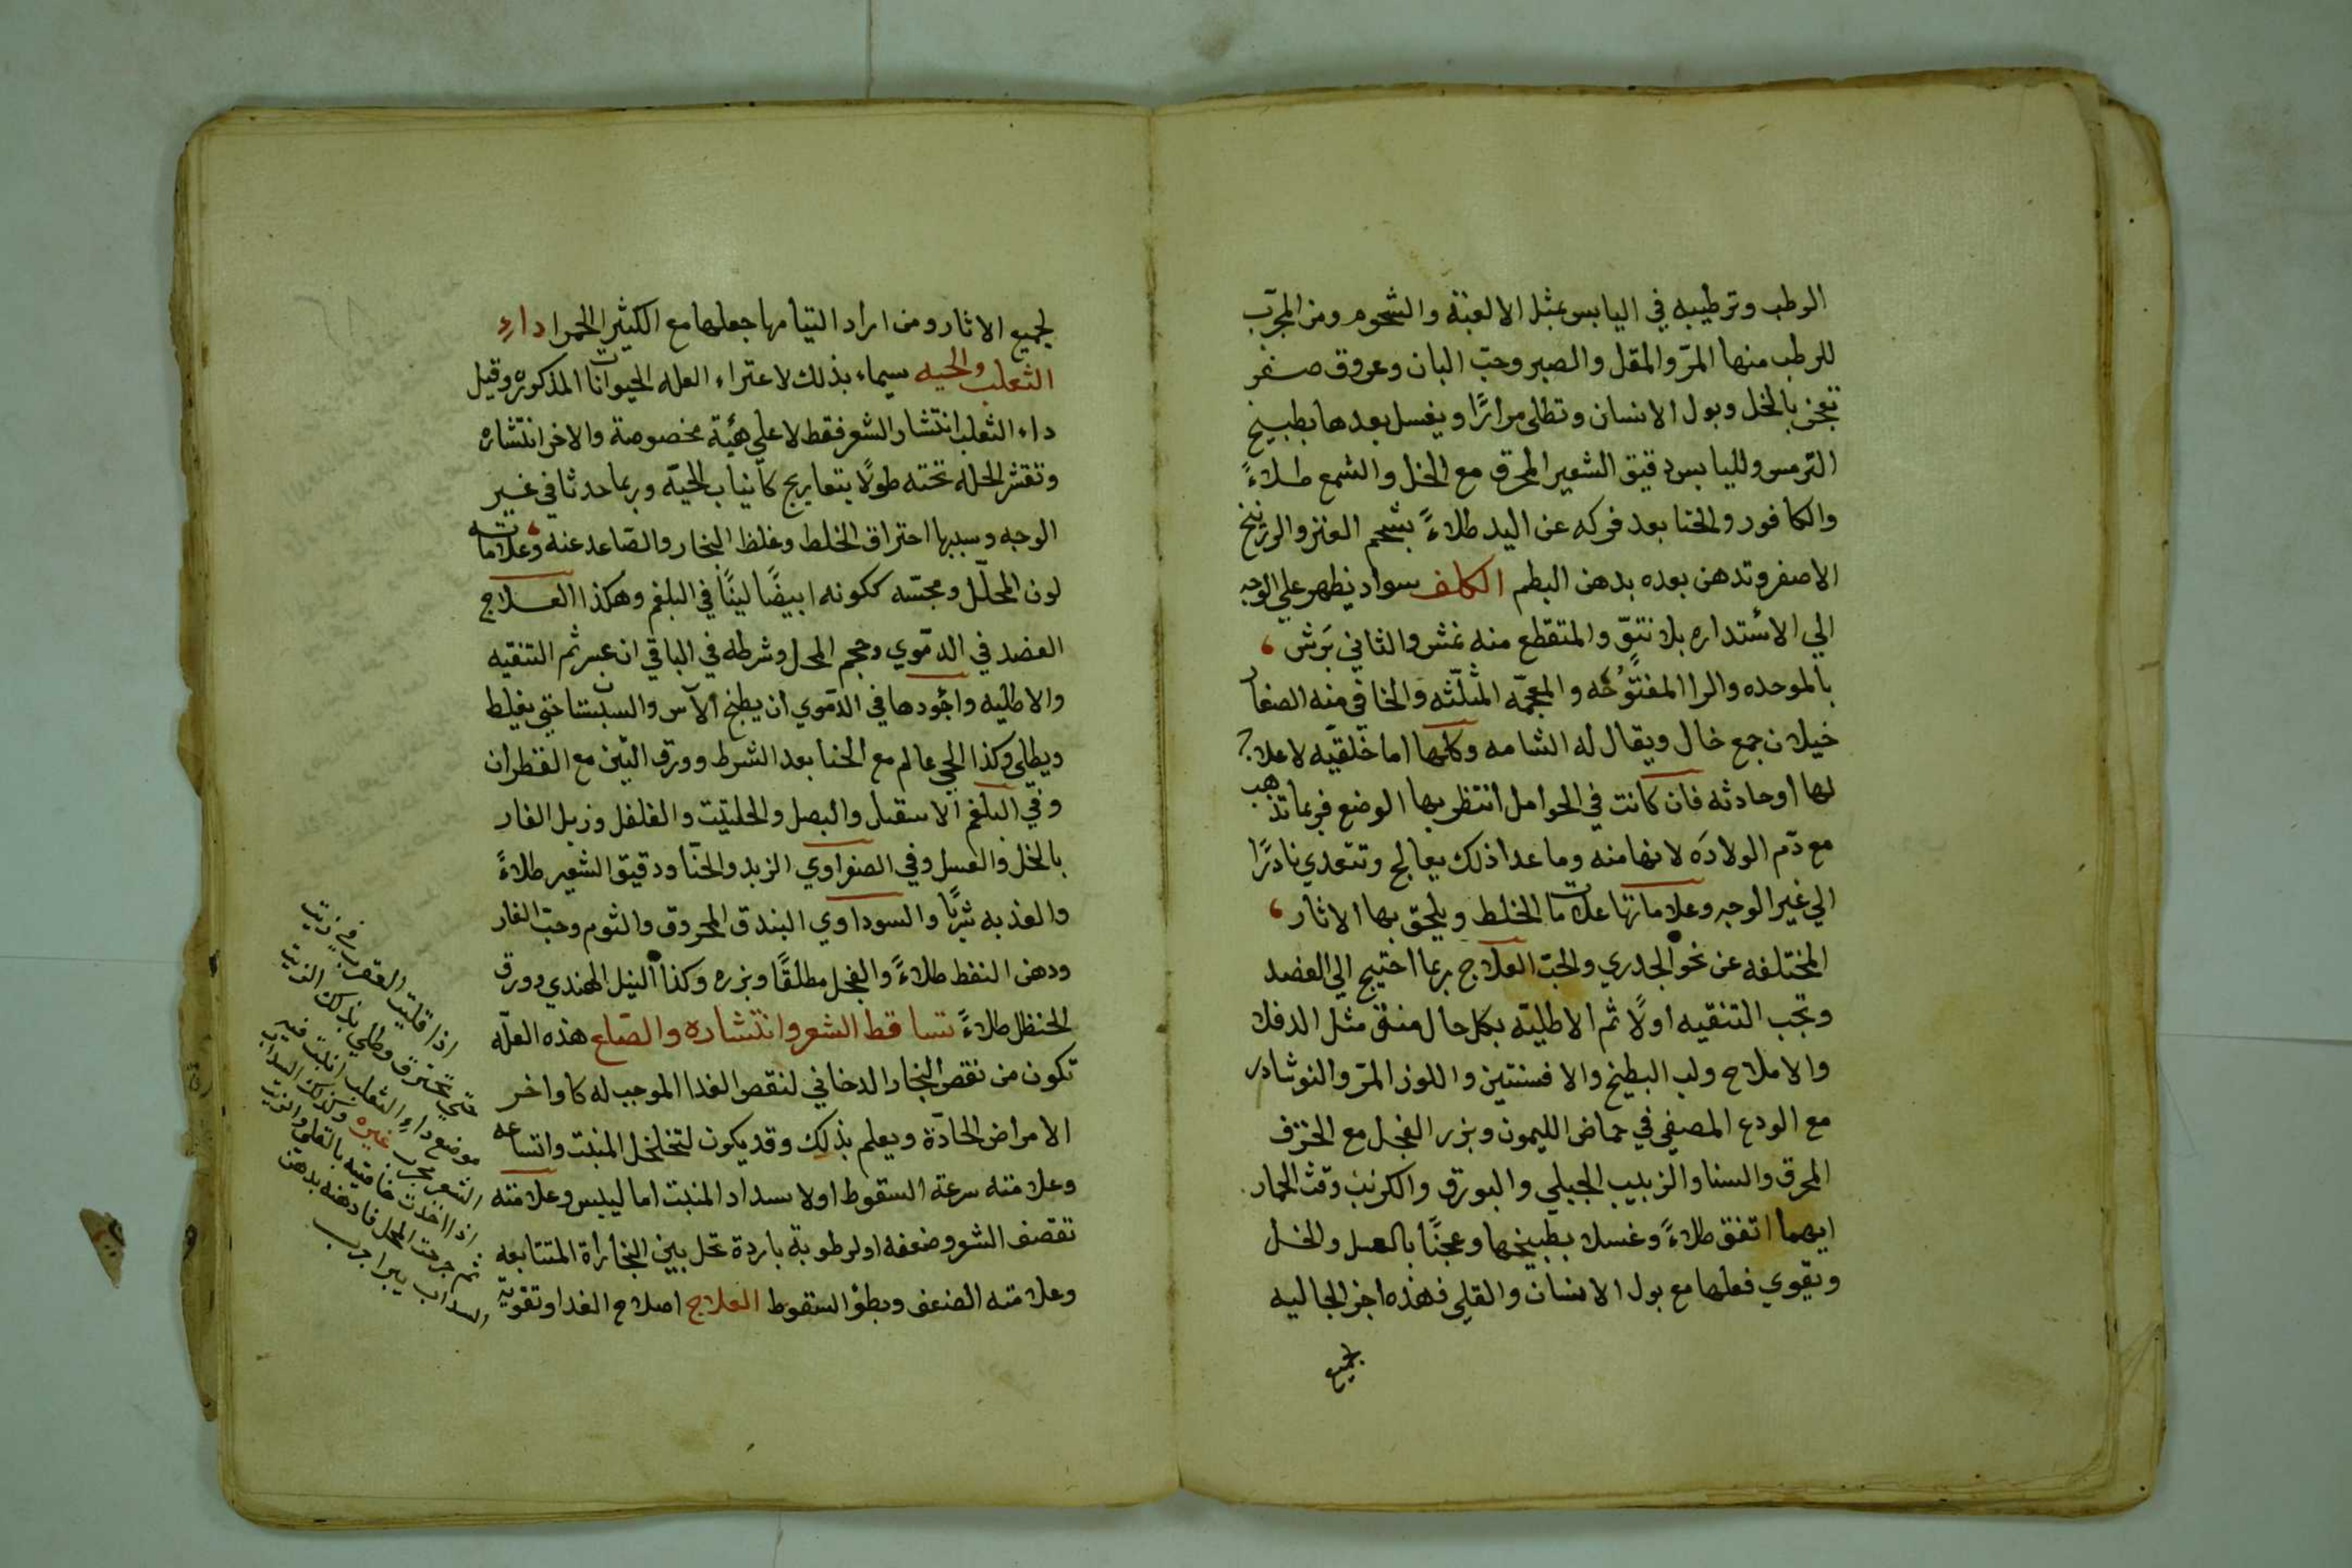 الرطب وترطيبه في اليابس بمثل الالعبة والشحوم ومن المجرب
للرطب منها المرّ والمقل والصبر وحبّ البان وعروق صفر
تعجن بالخل وبول الانسان وتطلى مرارًا ويغسل بعدها بطبيخ
الترمس ولليابس دقيق الشعير المحرق مع الخل والشمع طلاءً
والكافور والحنا بعد فركه عن اليد طلاءً بشحم العنز والزرنيخ
الاصفر وتدهن بعده بدهن البطم الكلف سواد يظهر علي الوجه
الي الأستداره بلا نتوّ والمتقطع منه نمش والثاني بَرَش
بالموحده والرا المفتوحه والمعجمّه المثلّثه والخافي منه الصغار
خيلان جمع خال ويقال له الشامه وكلها اما خلقيّه لاعلاج
لها أوحادثه فان كانت في الحوامل انتظر بها الوضع فربما تذهب
مع دّم الولادَه لانها منه وما عدا ذلك يعالج وتتعدي نادرًا
الي غير الوجه وعلاماتها علامات الخلط ويلحق بها الاثار
المختلفه عن نحو الجدري والحبّ العلاج ربما احتيج الي الفصد
وتجب التنقيه اولًا ثم الاطليّه بكل حال منق مثل الدفلي
والاملاح ولب البطيخ والافسنتين واللوز المرّ والنوشادر
مع الودع المصفي في حماض الليمون وبزر الفجل مع الخزف
المحرق والسنا والزبيب الجبلي والبورق والكرنب وقث الحمار
ايهما اتفق طلاءً وغسلا بطبيخها وعجنًا بالعسل والخل
ويقوي فعلها مع بول الانسان والقلي فهذه اجز الجاليه
لجميع
لجميع الاثار ومن اراد التيامها جعلها مع الكثيرا الحمرا داءِ
الثعلب والحيه سيماء بذلك لاعتراء العله الحيوانات المذكوره وقيل
داء الثعلب انتشار الشعر فقط لا علي هيئة مخصوصة والاخر انتشاره
وتقشر الجلد تحته طولًا بتعاريج كأنياب الحيّه وربما حدثا في غير
الوجه وسببها احتراق الخلط وغلظ البخار والصّاعد عنه وعلاماته
لون المحلّل ومجسّه ككونه ابيضًا لينًا في البلغم وهكذا العلاج
الفصد في الدمّوي وحجم المحل وشرطه في الباقي ان عسر ثم التنقيه
والاطليه واجودها في الدمّوي ان يطبخ الآس والسبستان حتي يغلظ
ويطلى وكذا الحي عالم مع الحنا بعد الشرط وورق التين مع القطران
وفي البلغم الاسقيل والبصل والحلتيت والفلفل وزبل الفار
بالخل والعسل وفي الصفراوي الزبد والحنّا ودقيق الشعير طلاءً
والعذبه نثرًا والسوداوي البندق المحروق والثوم وحبّ الغار
ودهن النفط طلاءً والفجل مطلقًا وبزره وكذا النيل الهندي وورق
الحنظل طلاءً تساقط الشعر وانتشاره والصّلع هذه العلّه
تكون من نقص البخار الدخاني لنقص الغدا الموجب له كاواخر
الامراض الحادّة ويعلم بذلك وقد يكون لتخلخل المنبت واتساعه
وعلامته سرعة السقوط اولا سداد المنبت اما ليبس وعلامته
تقصف الشعر وضعفه اولرطوبة باردة تحل بين البخاراة المتتابعه
وعلامته الضعف وبطؤ السقوط العلاج اصلاح الغدا وتقويّه
اذا قليت العقرب في زيت
حتي تحترق وطلي بذلك الزيت
موضع داء الثعلب انبت فيه
الشعر مجرب غيره وكذلك السداب
اذا اخذت خافقيه بالقلي والزيت
ثم جرحت المحل فادهنه بدهن
السداب يبرا مجرب